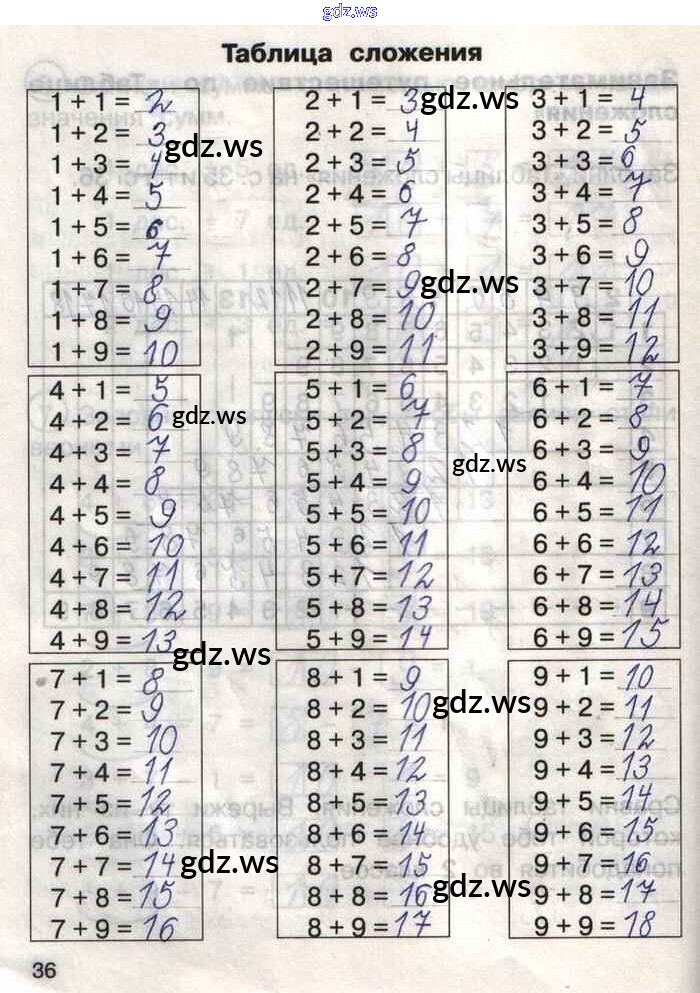 gdz.ws
Таблица сложения
1 + 1 = 2
1 + 2 = 3
1 + 3 = 4
1 + 4 = 5
1 + 5 = 6
1 + 6 = 7
1 + 7 = 8
1 + 8 = 9
1 + 9 = 10
gdz.ws
2 + 1 = 3
2 + 2 = 4
2 + 3 = 5
2 + 4 = 6
2 + 5 = 7
2 + 6 = 8
2 + 7 = 9
2 + 8 = 10
2 + 9 = 11
gdz.ws
gdz.ws
3 + 1 = 4
3 + 2 = 5
3 + 3 = 6
3 + 4 = 7
3 + 5 = 8
3 + 6 = 9
3 + 7 = 10
3 + 8 = 11
3 + 9 = 12
4 + 1 = 5
4 + 2 = 6
4 + 3 = 7
4 + 4 = 8
4 + 5 = 9
4 + 6 = 10
4 + 7 = 11
4 + 8 = 12
4 + 9 = 13
gdz.ws
gdz.ws
5 + 1 = 6
5 + 2 = 7
5 + 3 = 8
5 + 4 = 9
5 + 5 = 10
5 + 6 = 11
5 + 7 = 12
5 + 8 = 13
5 + 9 = 14
gdz.ws
6 + 1 = 7
6 + 2 = 8
6 + 3 = 9
6 + 4 = 10
6 + 5 = 11
6 + 6 = 12
6 + 7 = 13
6 + 8 = 14
6 + 9 = 15
7 + 1 = 8
7 + 2 = 9
7 + 3 = 10
7 + 4 = 11
7 + 5 = 12
7 + 6 = 13
7 + 7 = 14
7 + 8 = 15
7 + 9 = 16
gdz.ws
8 + 1 = 9
8 + 2 = 10
8 + 3 = 11
8 + 4 = 12
8 + 5 = 13
8 + 6 = 14
8 + 7 = 15
8 + 8 = 16
8 + 9 = 17
gdz.ws
gdz.ws
9 + 1 = 10
9 + 2 = 11
9 + 3 = 12
9 + 4 = 13
9 + 5 = 14
9 + 6 = 15
9 + 7 = 16
9 + 8 = 17
9 + 9 = 18
36
gdz.ws